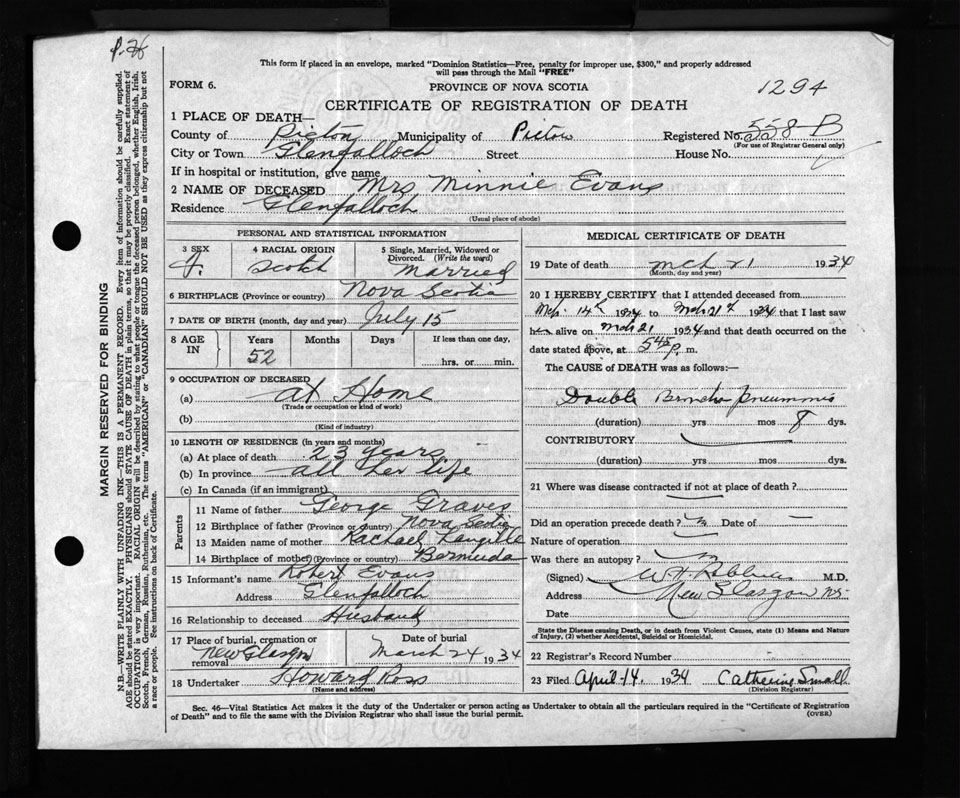 P. 26
This form if placed in an envelope, marked "Dominion Statistics—Free, penalty for improper use, $300," and properly addressed
will pass through the Mail "FREE"
FORM 6.
PROVINCE OF NOVA SCOTIA
1294
CERTIFICATE OF REGISTRATION OF DEATH
1 PLACE OF DEATH—
County of Picton Municipality of Pictou Registered No. 558-B
(For use of Registrar General only)
City or Town Glenfalloch Street House No.
If in hospital or institution, give name
2 NAME OF DECEASED Mrs Minnie Evans
Residence Glenfalloch
(Usual place of abode)
PERSONAL AND STATISTICAL INFORMATION
3 SEX F.
4 RACIAL ORIGIN Scotch
5 Single, Married, Widowed or
Divorced. (Write the word)
Married
6 BIRTHPLACE (Province or country) Nova Scotia
7 DATE OF BIRTH (month, day and year) July 15
8 AGE IN Years 52 Months Days If less than one day,
hrs. or min.
9 OCCUPATION OF DECEASED
(a) at Home
(Trade or occupation or kind of work)
(b)
(Kind of industry)
10 LENGTH OF RESIDENCE (in years and months)
(a) At place of death 23 years
(b) In province all her life
(c) In Canada (if an immigrant)
Parents
11 Name of father George Graves
12 Birthplace of father (Province or country) Nova Scotia
13 Maiden name of mother Rachael Langille
14 Birthplace of mother (Province or country) Bermuda
15 Informant's name Robert Evans
Address Glenfalloch
16 Relationship to deceased Husband
17 Place of burial, cremation or
removal New Glasgow
Date of burial
March 24 1934
18 Undertaker Howard Ross
(Name and address)
MEDICAL CERTIFICATE OF DEATH
19 Date of death Mch 21 1934
(Month, day and year)
20 I HEREBY CERTIFY that I attended deceased from
Mch. 14th 1934 to Mch 21st 1934 that I last saw
her alive on Mch 21 1934 and that death occurred on
date stated above, at 5 45 p. m.
The CAUSE of DEATH was as follows:—
Double Broncho pneumonia
(duration) yrs mos 8 dys.
CONTRIBUTORY
(duration) yrs mos dys.
21 Where was disease contracted if not at place of death?
Did an operation precede death? Date of —
Nature of operation
Was there an autopsy?
(Signed) M.D.
Address New Glasgow NS-
Date
State the Disease causing Death, or in death from Violent Causes, state (1) Means and Nature
of Injury, (2) whether Accidental, Suicidal or Homicidal.
22 Registrar's Record Number
23 Filed April 14. 1934 Catherine Small
(Division Registrar)
Sec. 46—Vital Statistics Act makes it the duty of the Undertaker or person acting as Undertaker to obtain all the particulars required in the "Certificate of Registration
of Death" and to file the same with the Division Registrar who shall issue the burial permit.
(OVER)
MARGIN RESERVED FOR BINDING
N.B.—WRITE PLAINLY WITH UNFADING INK—THIS IS A PERMANENT RECORD. Every item of information should be carefully supplied.
AGE should be stated EXACTLY. PHYSICIANS should STATE CAUSE OF DEATH in plain terms, so that it may be properly classified. Exact statement of
OCCUPATION is very important. RACIAL ORIGIN will be described by stating to what people or tongue the deceased person belonged, whether English, Irish,
Scotch, French, German, Russian, Ruthenian, etc. The terms "AMERICAN" or "CANADIAN" SHOULD NOT BE USED as they express citizenship but not
a race or people. See instructions on back of Certificate.